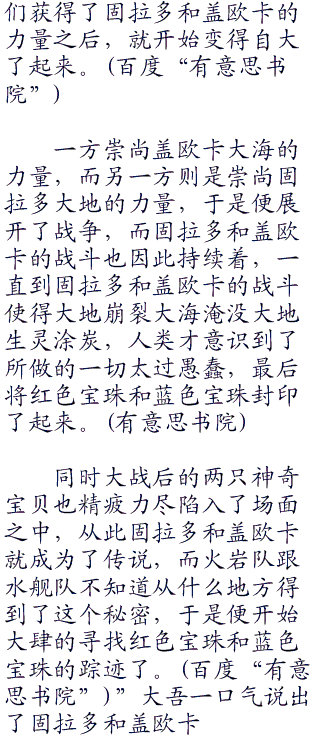 们获得了固拉多和盖欧卡的
力量之后，就开始变得自大
了起来。(百度“有意思书
院”)
一方崇尚盖欧卡大海的
力量，而另一方则是崇尚固
拉多大地的力量，于是便展
开了战争，而固拉多和盖欧
卡的战斗也因此持续着，一
直到固拉多和盖欧卡的战斗
使得大地崩裂大海淹没大地
生灵涂炭，人类才意识到了
所做的一切太过愚蠢，最后
将红色宝珠和蓝色宝珠封印
了起来。(有意思书院)
同时大战后的两只神奇
宝贝也精疲力尽陷入了场面
之中，从此固拉多和盖欧卡
就成为了传说，而火岩队跟
水舰队不知道从什么地方得
到了这个秘密，于是便开始
大肆的寻找红色宝珠和蓝色
宝珠的踪迹了。(百度“有意
思书院”)”大吾一口气说出
了固拉多和盖欧卡